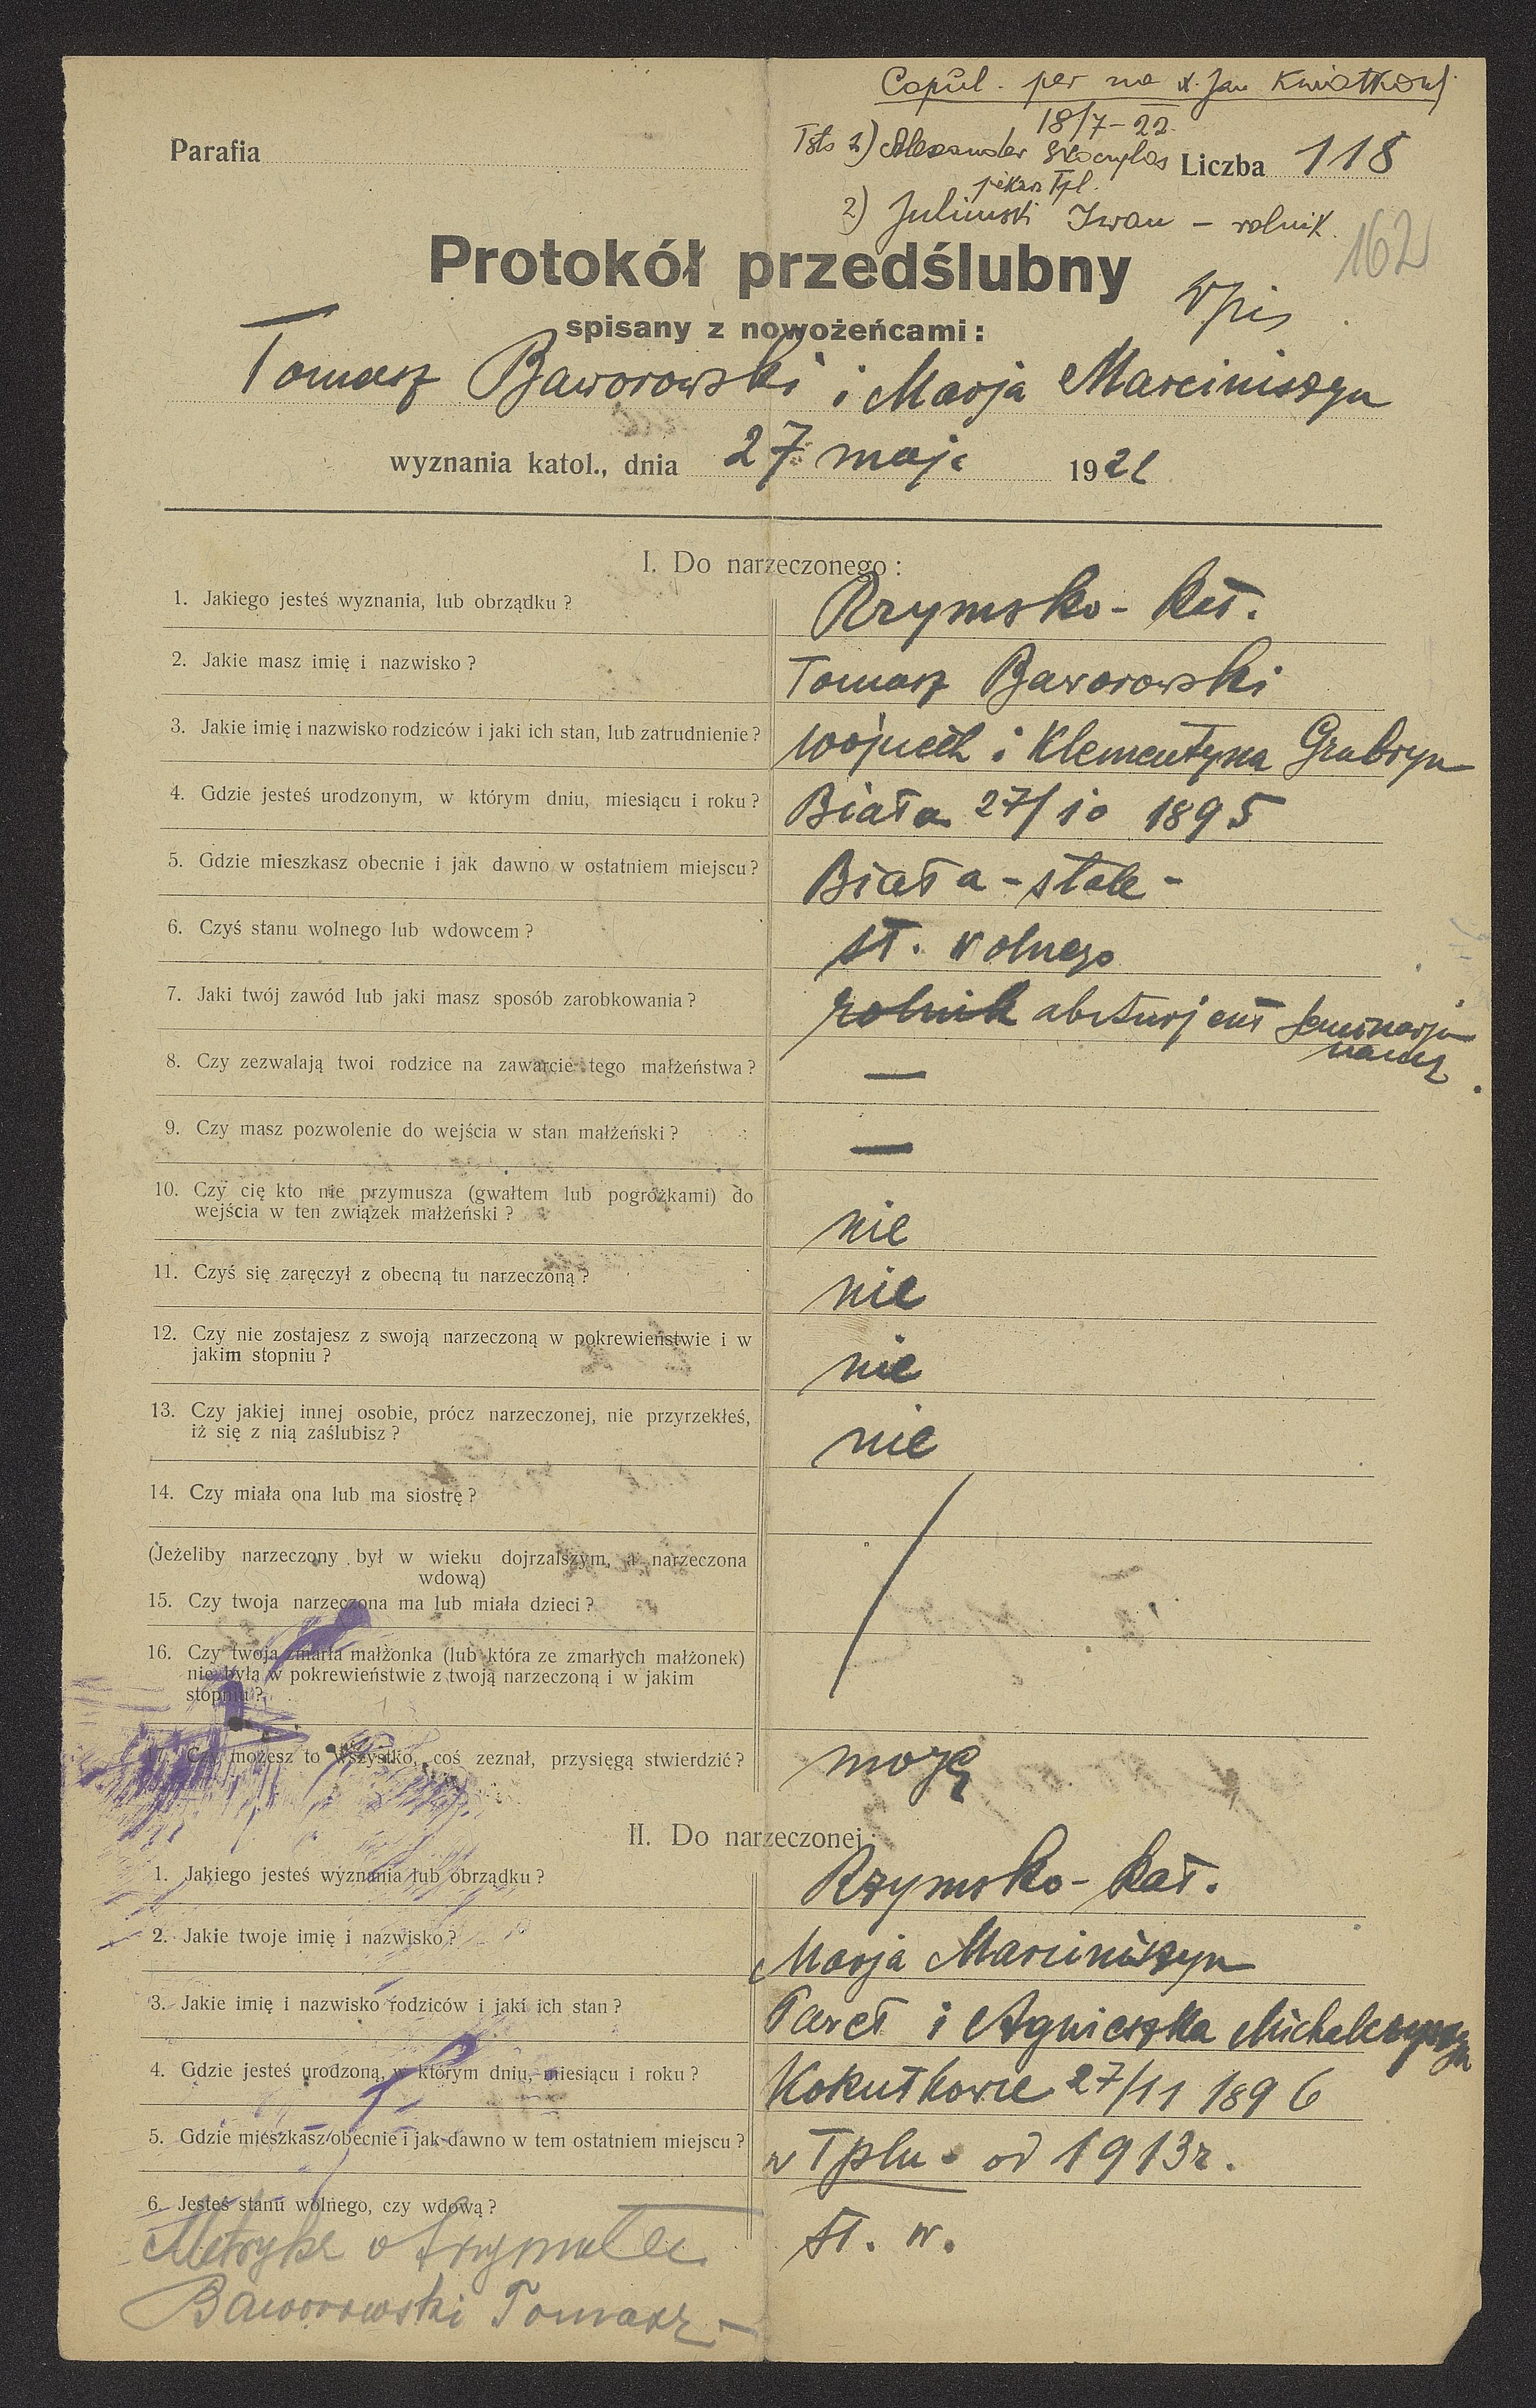 Copul. per me x. Jan Kwiatkowsk
18/7-22
Parafia
Tsts 1) Alexander Skoczylas Liczba 118
piekarz Tpl.
2) Juliński Iwan - rolnik
162
Protokół przedślubny
Wpis
spisany z nowożeńcami:
Tomasz Baworowski i Marja Marciniszyn
wyznania katol., dnia 27 maja 1922
I. Do narzeczonego:
1. Jakiego jesteś wyznania, lub obrządku? Rzymsko-kat.
2. Jakie masz imię i nazwisko? Tomasz Baworowski
3. Jakie imię i nazwisko rodziców i jaki ich stan, lub zatrudnienie? Wojciech i Klementyna Grabryn
4. Gdzie jesteś urodzonym, w którym dniu, miesiącu i roku? Biała 27/10 1895
5. Gdzie mieszkasz obecnie i jak dawno w ostatniem miejscu? Biała-stale-
6. Czyś stanu wolnego lub wdowcem? st. wolnego
7. Jaki twój zawód lub jaki masz sposób zarobkowania? rolnik abiturjent seminarju
naucz.
8. Czy zezwalają twoi rodzice na zawarcie tego małżeństwa? —
9. Czy masz pozwolenie do wejścia w stan małżeński? —
10. Czy cię kto nie przymusza (gwałtem lub pogróżkami) do
wejścia w ten związek małżeński? nie
11. Czyś się zaręczył z obecną tu narzeczoną? nie
12. Czy nie zostajesz z swoją narzeczoną w pokrewieństwie i w
jakim stopniu? nie
13. Czy jakiej innej osobie, prócz narzeczonej, nie przyrzekłeś,
iż się z nią zaślubisz? nie
14. Czy miała ona lub ma siostrę?
(Jeżeliby narzeczony był w wieku dojrzalszym, a narzeczona
wdową)
15. Czy twoja narzeczona ma lub miała dzieci?
16. Czy twoja zmarła małżonka (lub która ze zmarłych małżonek)
nie była w pokrewieństwie z twoją narzeczoną i w jakim
stopniu?
17. Czy możesz to wszystko, coś zeznał, przysięgą stwierdzić? mogę
II. Do narzeczonej:
1. Jakiego jesteś wyznania lub obrządku? Rzymsko-kat.
2. Jakie twoje imię i nazwisko? Marja Marciniszyn
3. Jakie imię i nazwisko rodziców i jaki ich stan? Paweł i Agnieszka Michalczyszyn
4. Gdzie jesteś urodzoną, w którym dniu, miesiącu i roku? Kokutkowce 27/11 1896
5. Gdzie mieszkasz obecnie i jak dawno w tem ostatniem miejscu? w Tplu od 1913 r.
6. Jesteś stanu wolnego, czy wdową? st. w.
Metrykę otrzymałem
Baworowski Tomasz